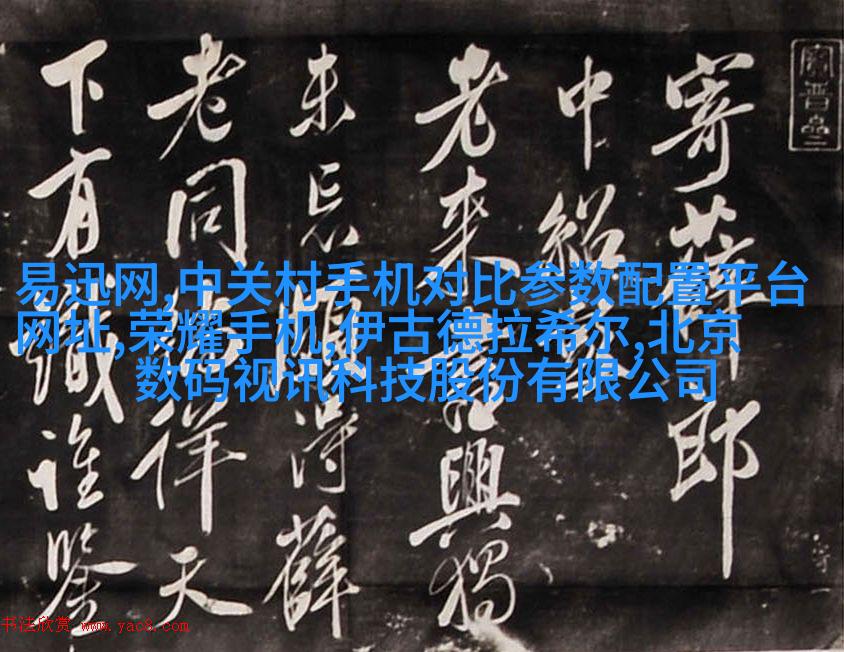 寄薛郎
中紹彭
老来書興獨
未忘頗得薛
老同徜徉天
下有識誰鑒
易迅网,中关村手机对比参数配置平台
网址,荣耀手机,伊古德拉希尔,北京
数码视讯科技股份有限公司
书法欣赏 www.yac8.com